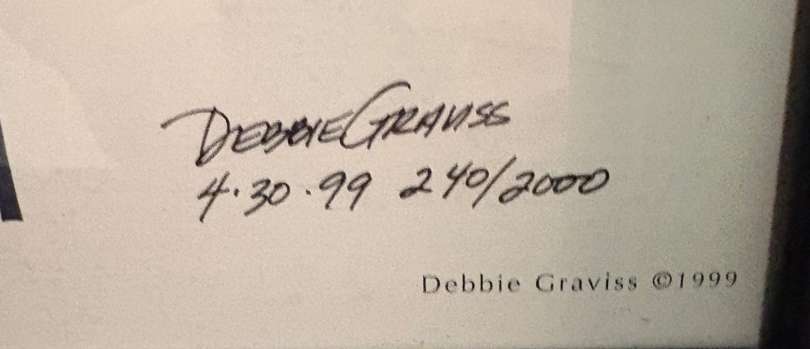 Debbie Graviss
4.30.99 240/2000
Debbie Graviss ©1999